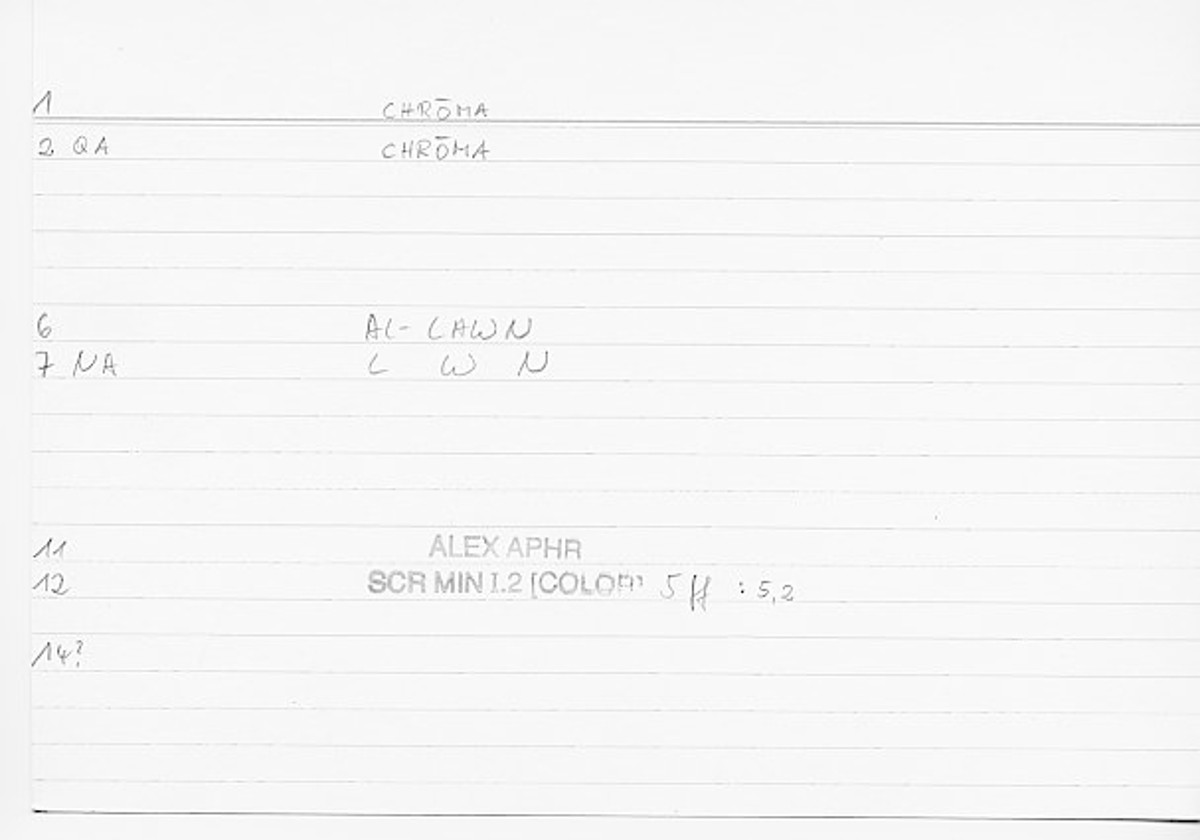 1 CHRŌMA
2 QA CHRŌMA
6 AL-LAWN
7 NA L W N
11 ALEX APHR
12 SCR MIN I.2 [COLOR] 5 ff : 5,2
14?